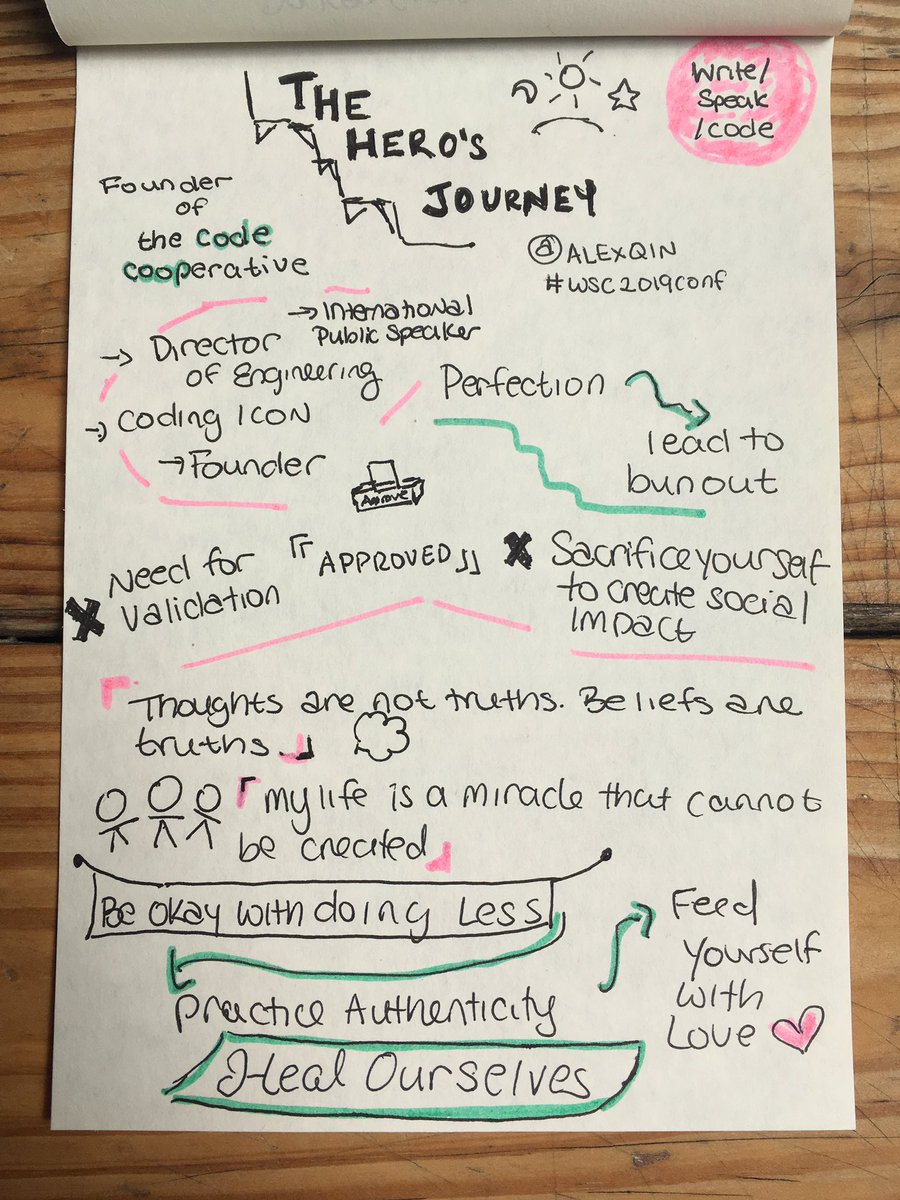 THE
HERO'S
JOURNEY
Write/
Speak
/code
Founder
of
the code
cooperative
@ALEXQIN
#WSC2019conf
→ International
Public Speaker
→ Director
of Engineering
→ Coding ICON
→ Founder
Perfection
lead to
bunout
Approve
✖ Need for
Validation
『APPROVED』
✖ Sacrifice yourself
to create social
Impact
『Thoughts are not truths. Beliefs are
truths.』
『my life is a miracle that cannot
be created』
Be okay with doing Less
Practice Authenticity
Feed
yourself
with
Love
Heal Ourselves